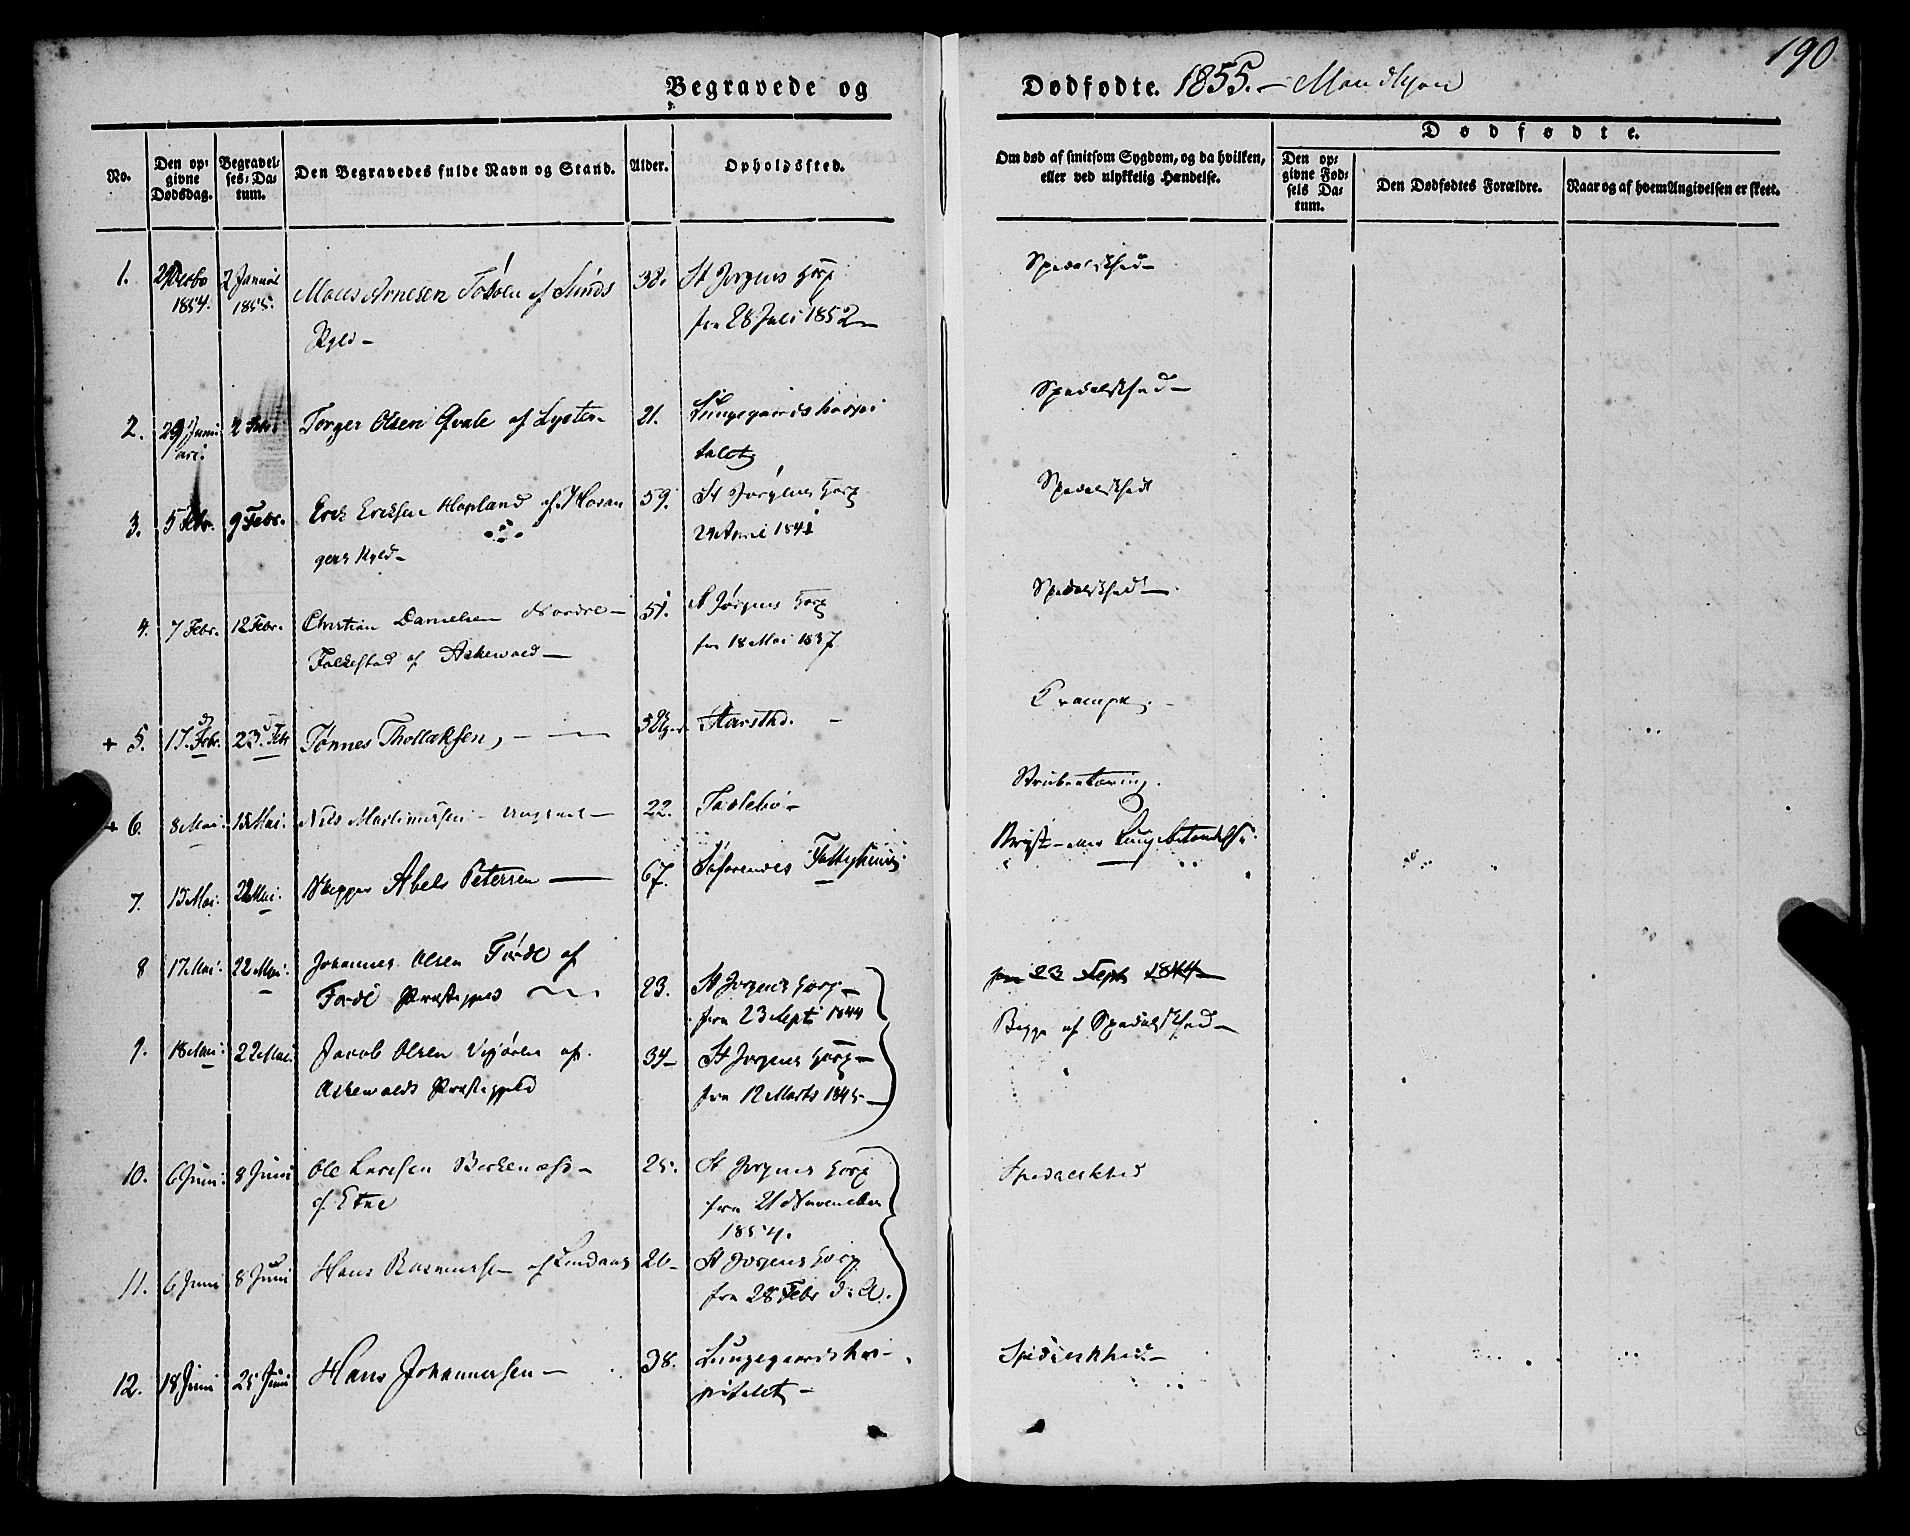 190
Begravede og Dødfødte. 1855. – Mandkjøn
No.
Den opgivne Dødsdag.
Begravelses-Datum.
Den Begravedes fulde Navn og Stand.
Alder.
Opholdssted.
Om død af smitsom Sygdom, og da hvilken, eller ved ulykkelig Hændelse.
Dødfødte.
Den opgivne Fødsels Datum.
Den Dødfødtes Forældre.
Naar og af hvem Angivelsen er skeet.
1. 1854. 2 Januar 1855. Mons Arnesen af Sunds 38. St Jørgens Hosp Spedalskhed –
fra 28 Juli 1852 –
2. 29 Januari. 2 Febr. Torger Olsen Qvale af Lyster – 21. Lungegaardshospi Spedalskhed –
talet
3. 5 Febr. 9 Febr. Erik Eriksen Hopland af Hosan 59. St Jørgens Hosp Spedalskhed
gers Kgld – 24 April 1841
4. 7 Febr. 12 Febr. Christian Danielsen Nordre – 51. St Jørgens Hosp Spedalskhed –
Folkestad af Askevold – fra 18 Mai 1837
+ 5. 17. Febr. 23. Febr Tønnes Thollaksen, – Aarstad. – Krampe. –
+ 6. 8 Mai. 15 Mai. Nils Martinussen – 22. Strubetæring.
7. 15 Mai. 22 Mai. Skipper Abels Petersen – 67. Søfarendes Fattighuus Bryst – eller Lungebetændelse.
8 17 Mai. 22 Mai. Johannes Olsen Førde af fra 23 Sept 1844 –
Førde Præstegjeld 23. St Jørgens Hosp –
fra 23 Sept 1844 Begge af Spedalskhed –
9. 18 Mai. 22 Mai. Jacob Olsen af 34 – St Jørgens Hosp –
Askevolds Præstegjeld fra 12 Marts 1845 –
10. 6 Juni. 8 Juni Ole Larssen 25. St Jørgens Hosp Spedalskhed
af Etne fra 21 November
1854.
11. 6 Juni 8 Juni Hans Rasmussen af Lindaas 26 – St Jørgens Hosp
fra 28 Febr d: A.
12. 18 Juni 25 Juni Hans Johannessen – 38. Lungegaardshos – Spedalskhed –
pitalet –